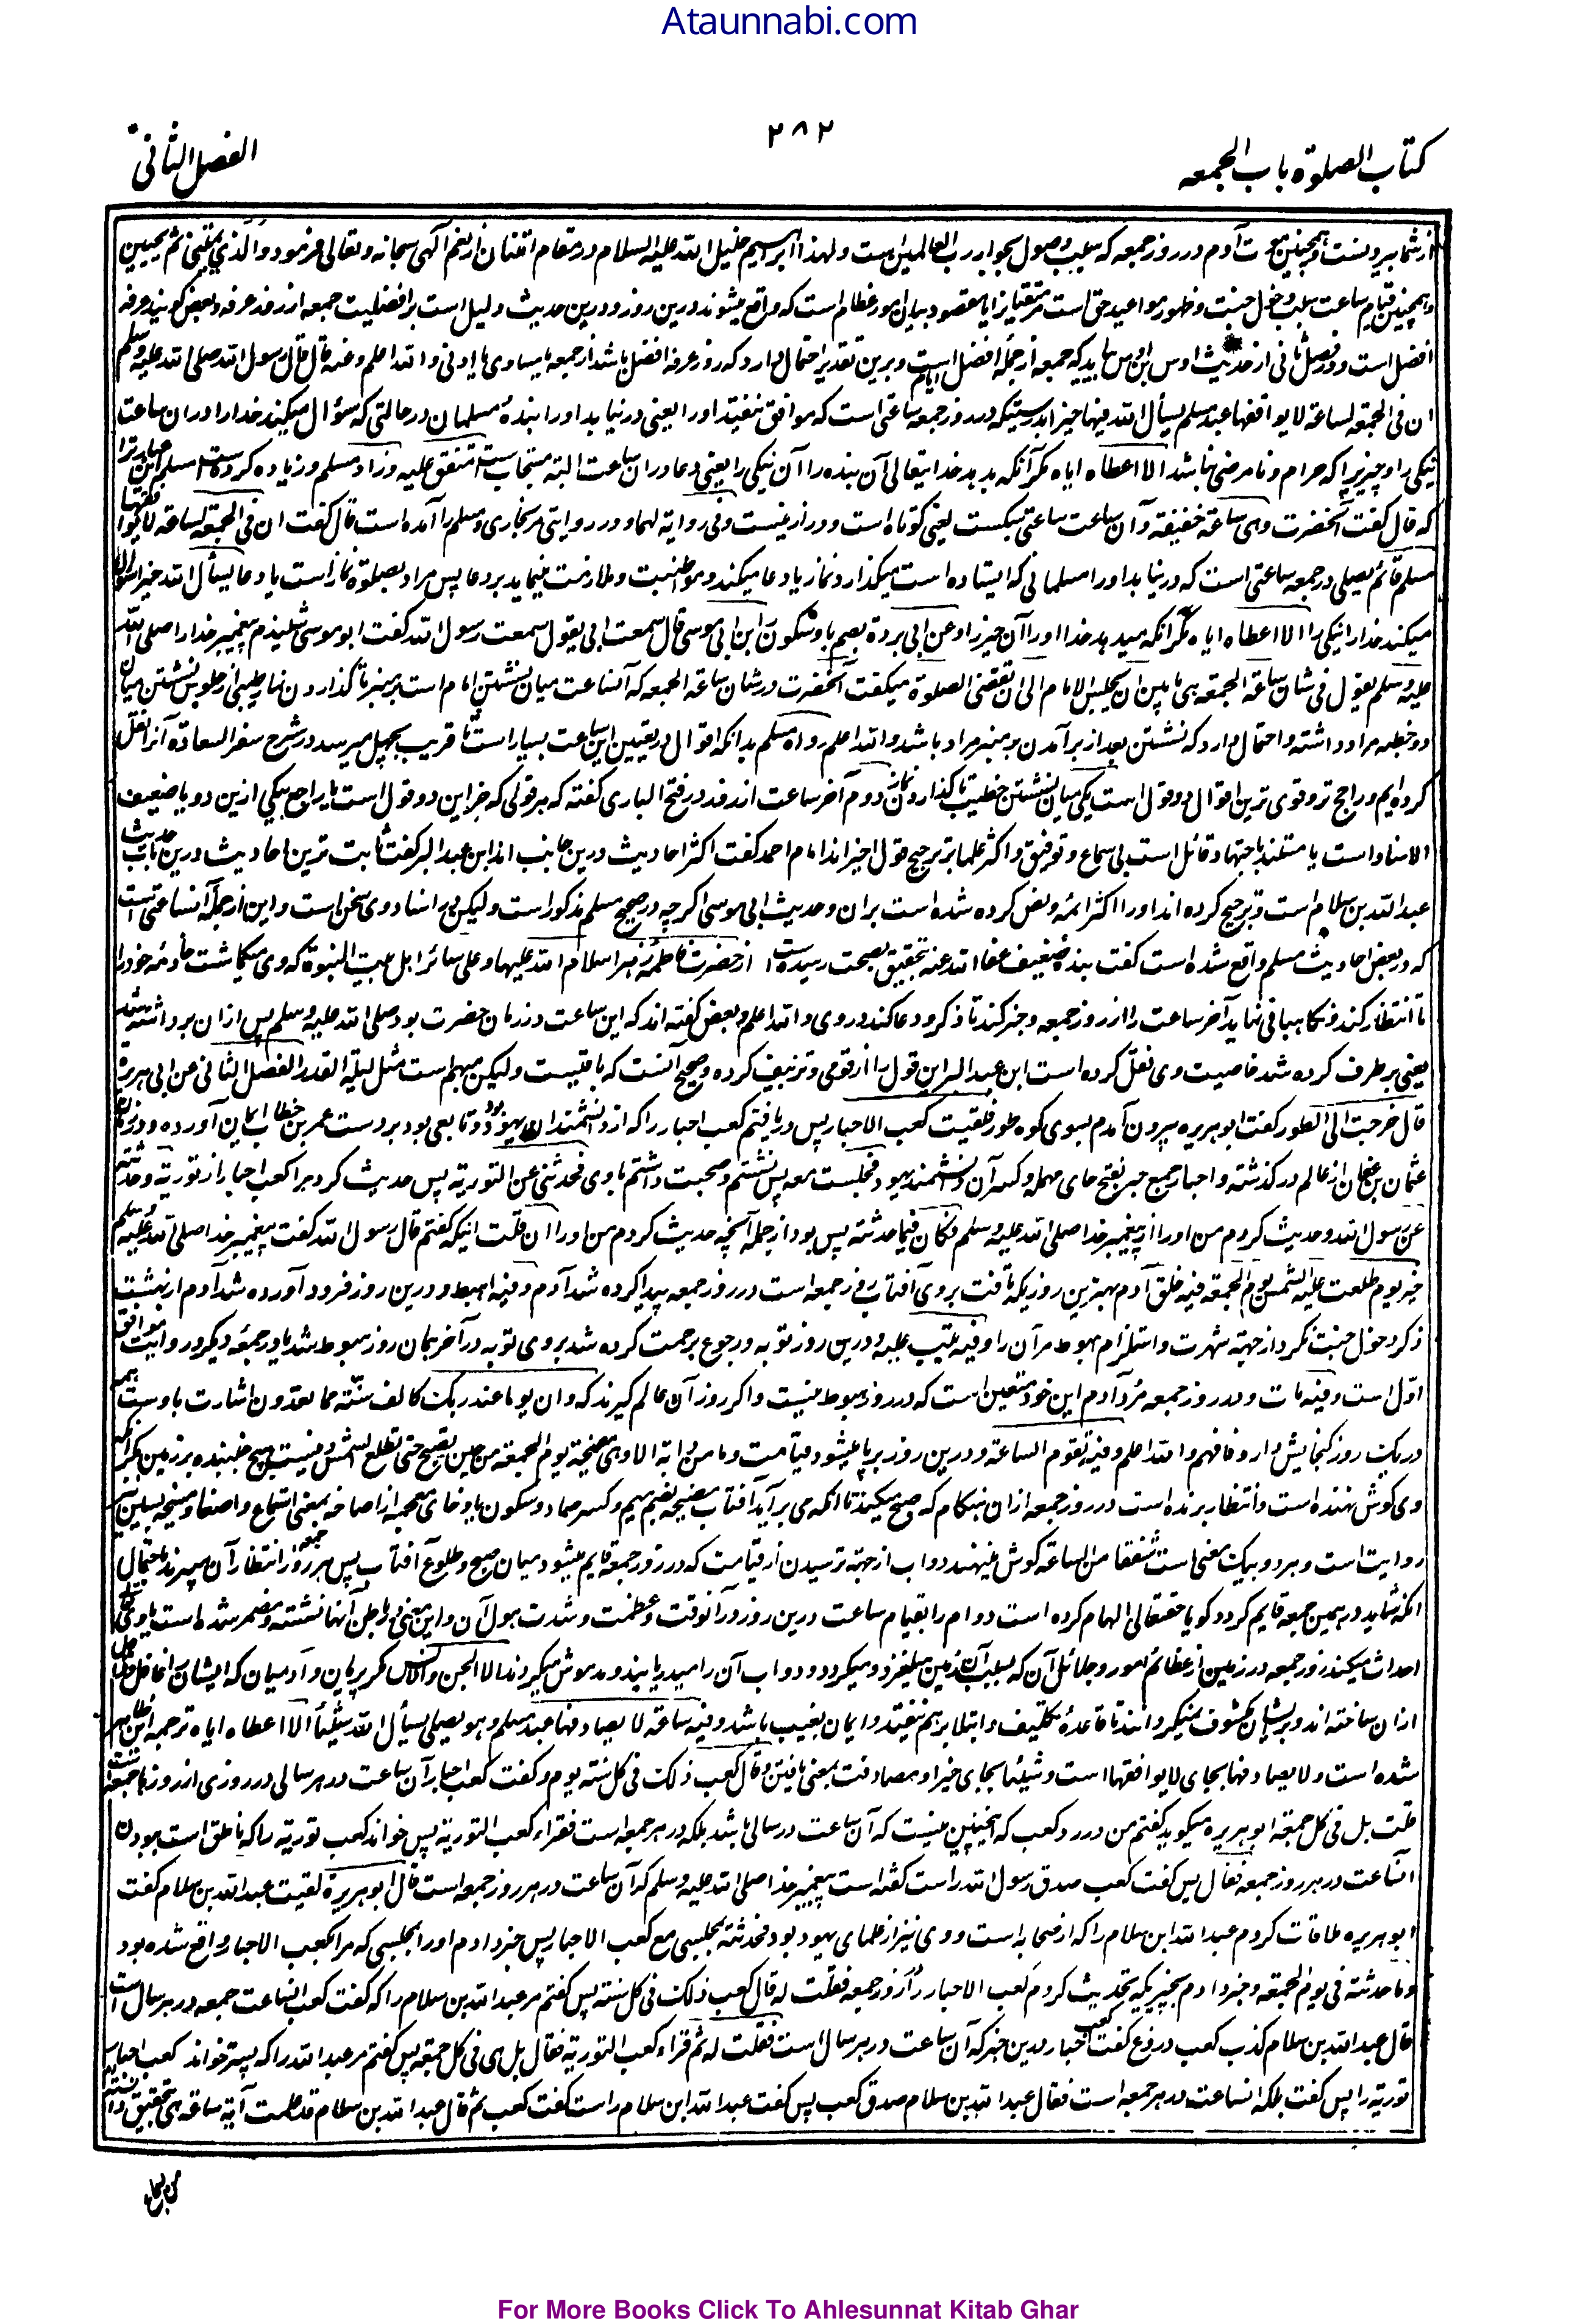 Ataunnabi.com
كتاب الصلوة باب الجمعه
۲۸۲
الفصل الثانی
از شما بیرونست و همچنین موت آدم در روز جمعه که سبب وصول بجوار رب العالمین است ولهذا ابراهیم خلیل الله علیه السلام در مقام امتنان از نعم الهی سبحانه وتعالی فرمود والذی یمیتنی ثم یحیین
و همچنین قیام ساعت سبب دخول جنت و ظهور مواعید حق است مر متقیان را یا مقصود بیان امور عظام است که واقع میشوند درین روز و درین حدیث دلیل است بر افضلیت جمعه از روز عرفه و بعض گویند عرفه
افضل است و در فصل ثانی از حدیث اوس بن اوس بیاید که جمعه از جمله افضل ایام است و برین تقدیر احتمال دارد که روز عرفه افضل باشد از جمعه یا مساوی یا ادنی والله اعلم وعنه قال قال رسول الله صلی الله علیه وسلم
ان فی الجمعة لساعة لا یوافقها عبد مسلم یسأل الله فیها خیرا بدرستیکه در روز جمعه ساعتی است که موافق نیفتد او را یعنی در نیابد او را بنده مسلمان در حالتی که سؤال میکند خدا را در آن ساعت
نیکی را و چیزی را که حرام و نا مرضی نباشد الا اعطاه ایاه مگر آنکه بدهد خدایتعالی آن بنده را آن نیکی را یعنی دعا در آن ساعت البته مستجاب است متفق علیه وزاد مسلم و زیاده کرده است مسلم این عبارت را
که قال گفت آنحضرت وهی ساعة خفیفة و آن ساعت ساعتی سبکست یعنی کوتاه است و دراز نیست وفی روایة لهما و در روایتی مر بخاری و مسلم را آمده است قال گفت ان فی الجمعة لساعة لا یوافقها
مسلم قائم یصلی در جمعه ساعتی است که در نیابد او را مسلمانی که ایستاده است میگذارد نماز یا دعا میکند و مواظبت و ملازمت مینماید بر دعا پس مراد بصلوة نماز است یا دعا یسأل الله خیرا سؤال
میکند خدا را نیکی را الا اعطاه ایاه مگر آنکه میدهد خدا او را آن چیز را وعن ابی بردة بضم با وسکون را ابن ابی موسی قال سمعت ابی یقول سمعت رسول الله گفت ابو موسی شنیدم پیغمبر خدا را صلی الله
علیه وسلم یقول فی شان ساعة الجمعة هی ما بین ان یجلس الامام الی ان تقضی الصلوة میگفت آنحضرت در شان ساعة الجمعه که آنساعت میان نشستن امام است بر منبر تا گذاردن نماز طیبی از جلوس نشستن میان
دو خطبه مراد داشته و احتمال دارد که نشستن بعد از برآمدن بر منبر مراد باشد والله اعلم رواه مسلم بدانکه اقوال در تعیین این ساعت بسیار است تا قریب بچهل میرسد در شرح سفر السعادة آنرا نقل
کرده ایم و راجح تر و قوی ترین اقوال دو قول است یکی میان نشستن خطیب تا گذاردن نماز دوم آخر ساعت از روز در فتح الباری گفته که هر قولی که جز این دو قول است یا راجع بیکی ازین دو یا ضعیف
الاسناد است یا مستند باجتهاد قائل است بی سماع و توقیف و اکثر علما بترجیح قول اخیر اند امام احمد گفت اکثر احادیث درین جانب اند ابن عبد البر گفت ثابت ترین احادیث درین باب حدیث
عبد الله بن سلام است و ترجیح کرده اند او را اکثر ائمه و نص کرده شده است بران و حدیث ابی موسی اگرچه در صحیح مسلم مذکور است ولیکن در اسناد وی سخن است و این از جمله آنساعتی است
که در بعض احادیث مسلم واقع شده است گفت بنده ضعیف عفا الله عنه بتحقیق بصحت رسیده است از حضرت فاطمه زهرا سلام الله علیها وعلی سائر اهل بیت النبوة که وی میگماشت خادمه خود را
تا انتظار کند و نگاهبانی نماید آخر ساعت را از روز جمعه و خبر کند تا ذکر و دعا کند در وی والله اعلم و بعض گفته اند که این ساعت در زمان حضرت بود صلی الله علیه وسلم پس ازان برداشته شد
یعنی بر طرف کرده شد خاصیت وی نقل کرده است ابن عبد البر این قول را از قومی و تزییف کرده و صحیح آنست که باقیست ولیکن مبهم است مثل لیلة القدر الفصل الثانی عن ابی هریرة
قال خرجت الی الطور گفت ابو هریره بیرون آمدم بسوی کوه طور فلقیت کعب الاحبار پس دریافتم کعب احبار را که از دانشمندان یهود بود و تابعی بود بر دست عمر بن خطاب ایمان آورده و در زمان
عثمان بن عفان از عالم درگذشته و احبار جمع حبر بفتح حای مهمله و کسر آن دانشمند یهود فجلست معه پس نشستم و صحبت داشتم با وی فحدثنی عن التوریة پس حدیث کرد مرا کعب احبار از توریة وحدثته
عن رسول الله وحدیث کردم من او را از پیغمبر خدا صلی الله علیه وسلم فکان فیما حدثته پس بود از جمله آنچه حدیث کردم من او را ان قلت اینکه گفتم قال رسول الله گفت پیغمبر خدا صلی الله علیه وسلم
خیر یوم طلعت علیه الشمس یوم الجمعة فیه خلق آدم بهترین روزیکه تافت بروی آفتاب روز جمعه است در روز جمعه پیدا کرده شد آدم وفیه اهبط و درین روز فرود آورده شد آدم از بهشت
ذکر دخول جنت نکرد از جهت شهرت و استلزام هبوط مر آن را وفیه تیب علیه و درین روز توبه و رجوع برحمت کرده شد بر وی توبه در آخر همان روز هبوط شد یا در جمعه دیگر و روایت موافق
اول است وفیه مات ودر روز جمعه مرد آدم این خود متعین است که در روز هبوط نیست و اگر روز آن عالم گیرند که وان یوما عند ربک کالف سنة مما تعدون اشارت باوست همه
در یک روز گنجایش دارد فافهم والله اعلم وفیه تقوم الساعة و درین روز بر پا میشود قیامت وما من دابة الا وهی مصیخة یوم الجمعة من حین تصبح حتی تطلع الشمس و نیست هیچ جنبنده بر زمین مگر آنکه
وی گوش نهنده است و انتظار برنده است در روز جمعه ازان هنگام که صبح میکند تا آنکه می برآید آفتاب مصیخة بضم میم و کسر صاد و سکون یا و خای معجمه از اصاخه بمعنی استماع و اصغا و مسیخة بسین نیز
روایت است و هر دو بیک معنی است شفقا من الساعة گوش مینهند دواب از جهت ترسیدن از قیامت که در روز جمعه قایم میشود میان صبح و طلوع آفتاب پس هر روز جمعه انتظار آن میبرند باحتمال
آنکه شاید در همین جمعه قایم گردد گویا حقتعالی الهام کرده است دواب را بقیام ساعت درین روز در آنوقت و عظمت و شدت هول آن و این معنی در باطن آنها نشسته و مضمر شده است یا ویتعالی
احداث میکند روز جمعه در زمین از عظائم امور و جلائل آن که بسبب آن زمین میلغزد و میگردد و دواب آن را میدریابند و مدهوش میگردند الا الجن والانس مگر پریان و آدمیان که ایشان را غافل
ازان ساخته اند و بر ایشان مکشوف نمیگردانند تا قاعده تکلیف و ابتلا بر هم نیفتد و ایمان بغیب باشد وفیه ساعة لا یصادفها عبد مسلم وهو یصلی یسأل الله شیئا الا اعطاه ایاه ترجمه این ظاهر
شده است ولا یصادفها بجای لا یوافقها است وشیئا بجای خیرا و مصادفت بمعنی یافتن وقال کعب ذلک فی کل سنة یوم و گفت کعب احبار آن ساعت در هر سالی در روزی از روزها جمعه است
قلت بل فی کل جمعة ابو هریره میگوید گفتم من در رد کعب که اینچنین نیست که آن ساعت در سالی باشد بلکه در هر جمعه است فقرأ کعب التوریة پس خواند کعب توریة را که ناطق است ببودن
آنساعت در هر روز جمعه فقال پس گفت کعب صدق رسول الله راست گفته است پیغمبر خدا صلی الله علیه وسلم که آن ساعت در هر روز جمعه است قال ابو هریرة لقیت عبد الله بن سلام گفت
ابو هریره ملاقات کردم عبد الله ابن سلام را که از صحابه است و وی نیز از علمای یهود بود فحدثته بمجلسی مع کعب الاحبار پس خبر دادم او را بمجلسی که مرا بکعب الاحبار واقع شده بود
وما حدثته فی یوم الجمعة وخبر دادم بچیزیکه تحدیث کردم کعب الاحبار را از روز جمعه فقلت له قال کعب ذلک فی کل سنة پس گفتم مر عبد الله بن سلام را که گفت کعب آنساعت جمعه در هر سال است
قال عبد الله بن سلام کذب کعب دروغ گفت کعب احبار درین خبر که آن ساعت در هر سال است فقلت له ثم قرأ کعب التوریة فقال بل هی فی کل جمعة پس گفتم مر عبد الله را که پستر خواند کعب احبار
توریة را پس گفت بلکه آنساعت در هر جمعه است فقال عبد الله بن سلام صدق کعب پس گفت عبد الله ابن سلام راست گفت کعب ثم قال عبد الله بن سلام قد علمت آیة ساعة هی بتحقیق دانسته ام
For More Books Click To Ahlesunnat Kitab Ghar